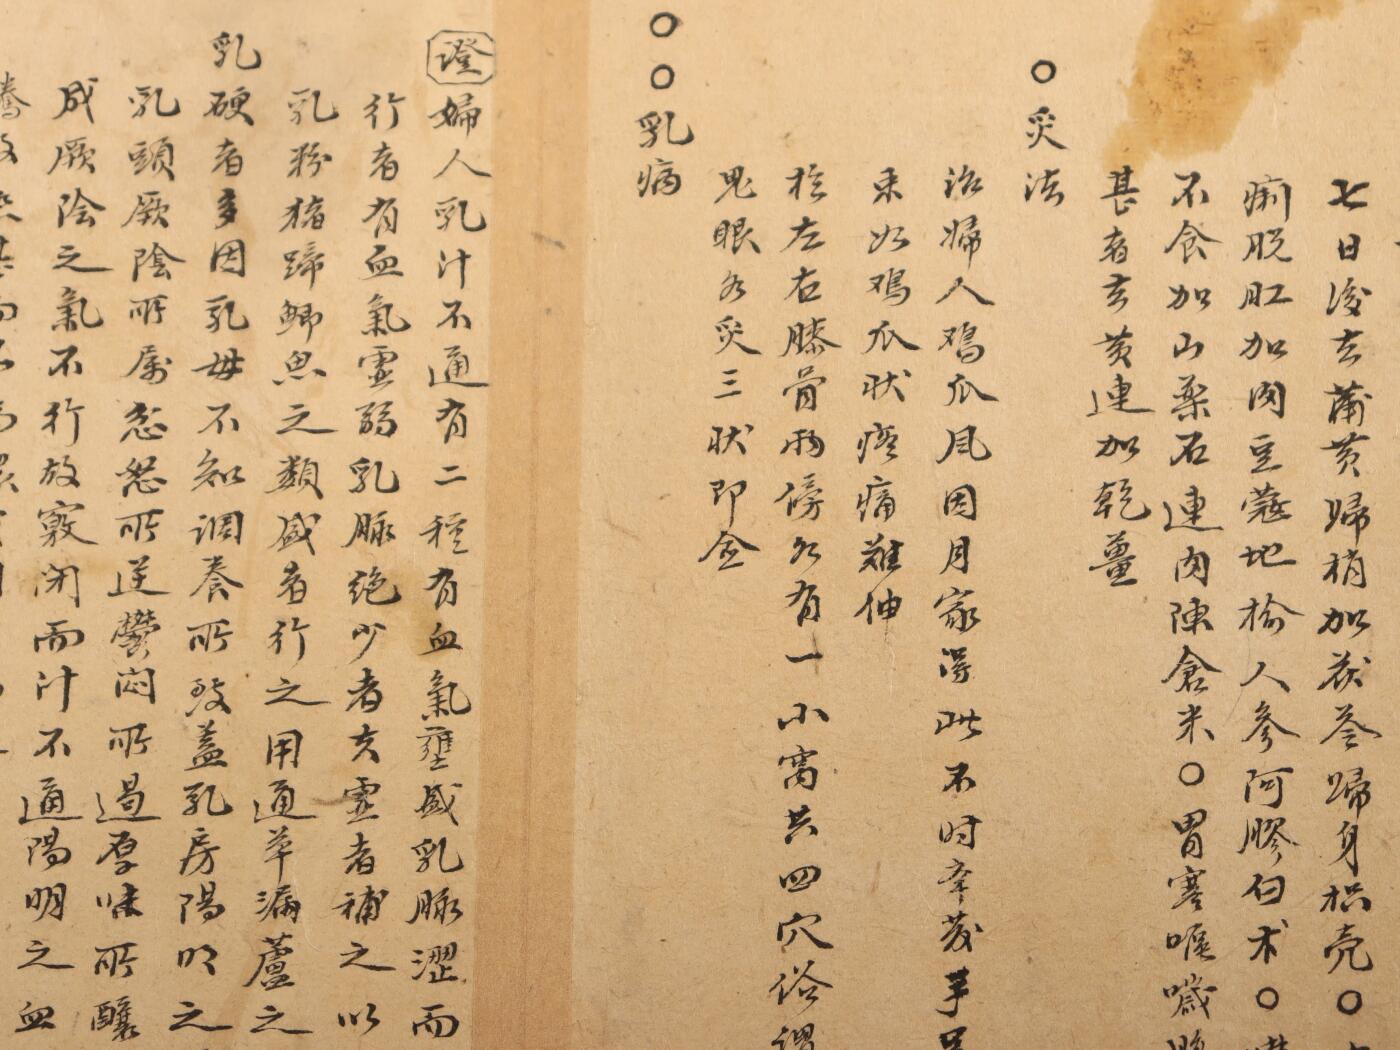 七日後去蒲黄歸梢加茯苓歸身枳壳○
痢脱肛加肉豆蔻地榆人參阿膠白术○
不食加山藥石連肉陳倉米○胃寒喉噦
甚者去黄連加乾薑
○灸法
治婦人鳮爪風因月家得此不时举发手足
束如鳮爪状疼痛難伸
於左右膝骨兩傍各有一小窩共四穴俗謂
鬼眼各灸三状即念
○○乳病
證婦人乳汁不通有二種有血氣壅盛乳脉澀而
行者有血氣虚弱乳脉绝少者夫虚者補之以
乳粉猪蹄鲫魚之類盛者行之用通草漏蘆之
乳硬者多因乳母不知调養所致蓋乳房陽明之
乳頭厥陰所属忿怒所逆鬱闷所遏厚味所釀
成厥陰之氣不行故竅闭而汁不通陽明之血